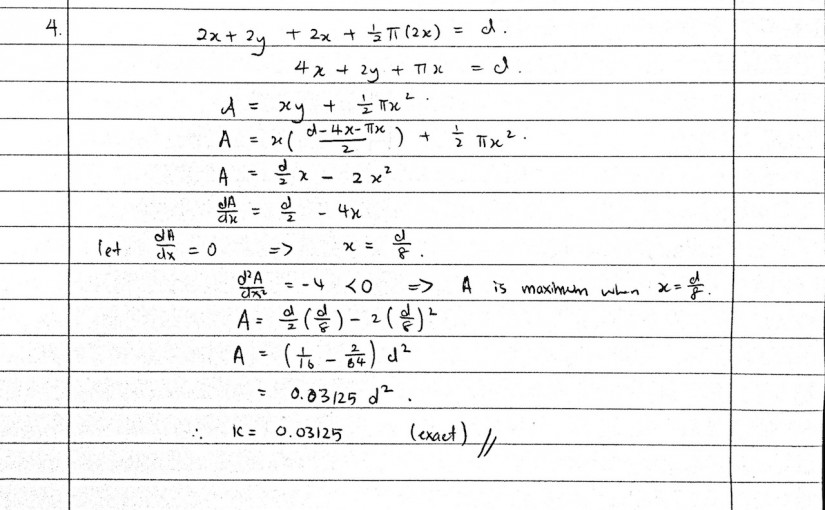 4. 2x + 2y + 2x + ½π(2x) = d.
4x + 2y + πx = d.
A = xy + ½πx².
A = x((d-4x-πx)/2) + ½πx².
A = d/2 x - 2x²
dA/dx = d/2 - 4x
let dA/dx = 0 => x = d/8.
d²A/dx² = -4 < 0 => A is maximum when x = d/8.
A = d/2 (d/8) - 2(d/8)²
A = (1/16 - 2/64) d²
= 0.03125 d².
∴ k = 0.03125 (exact) //